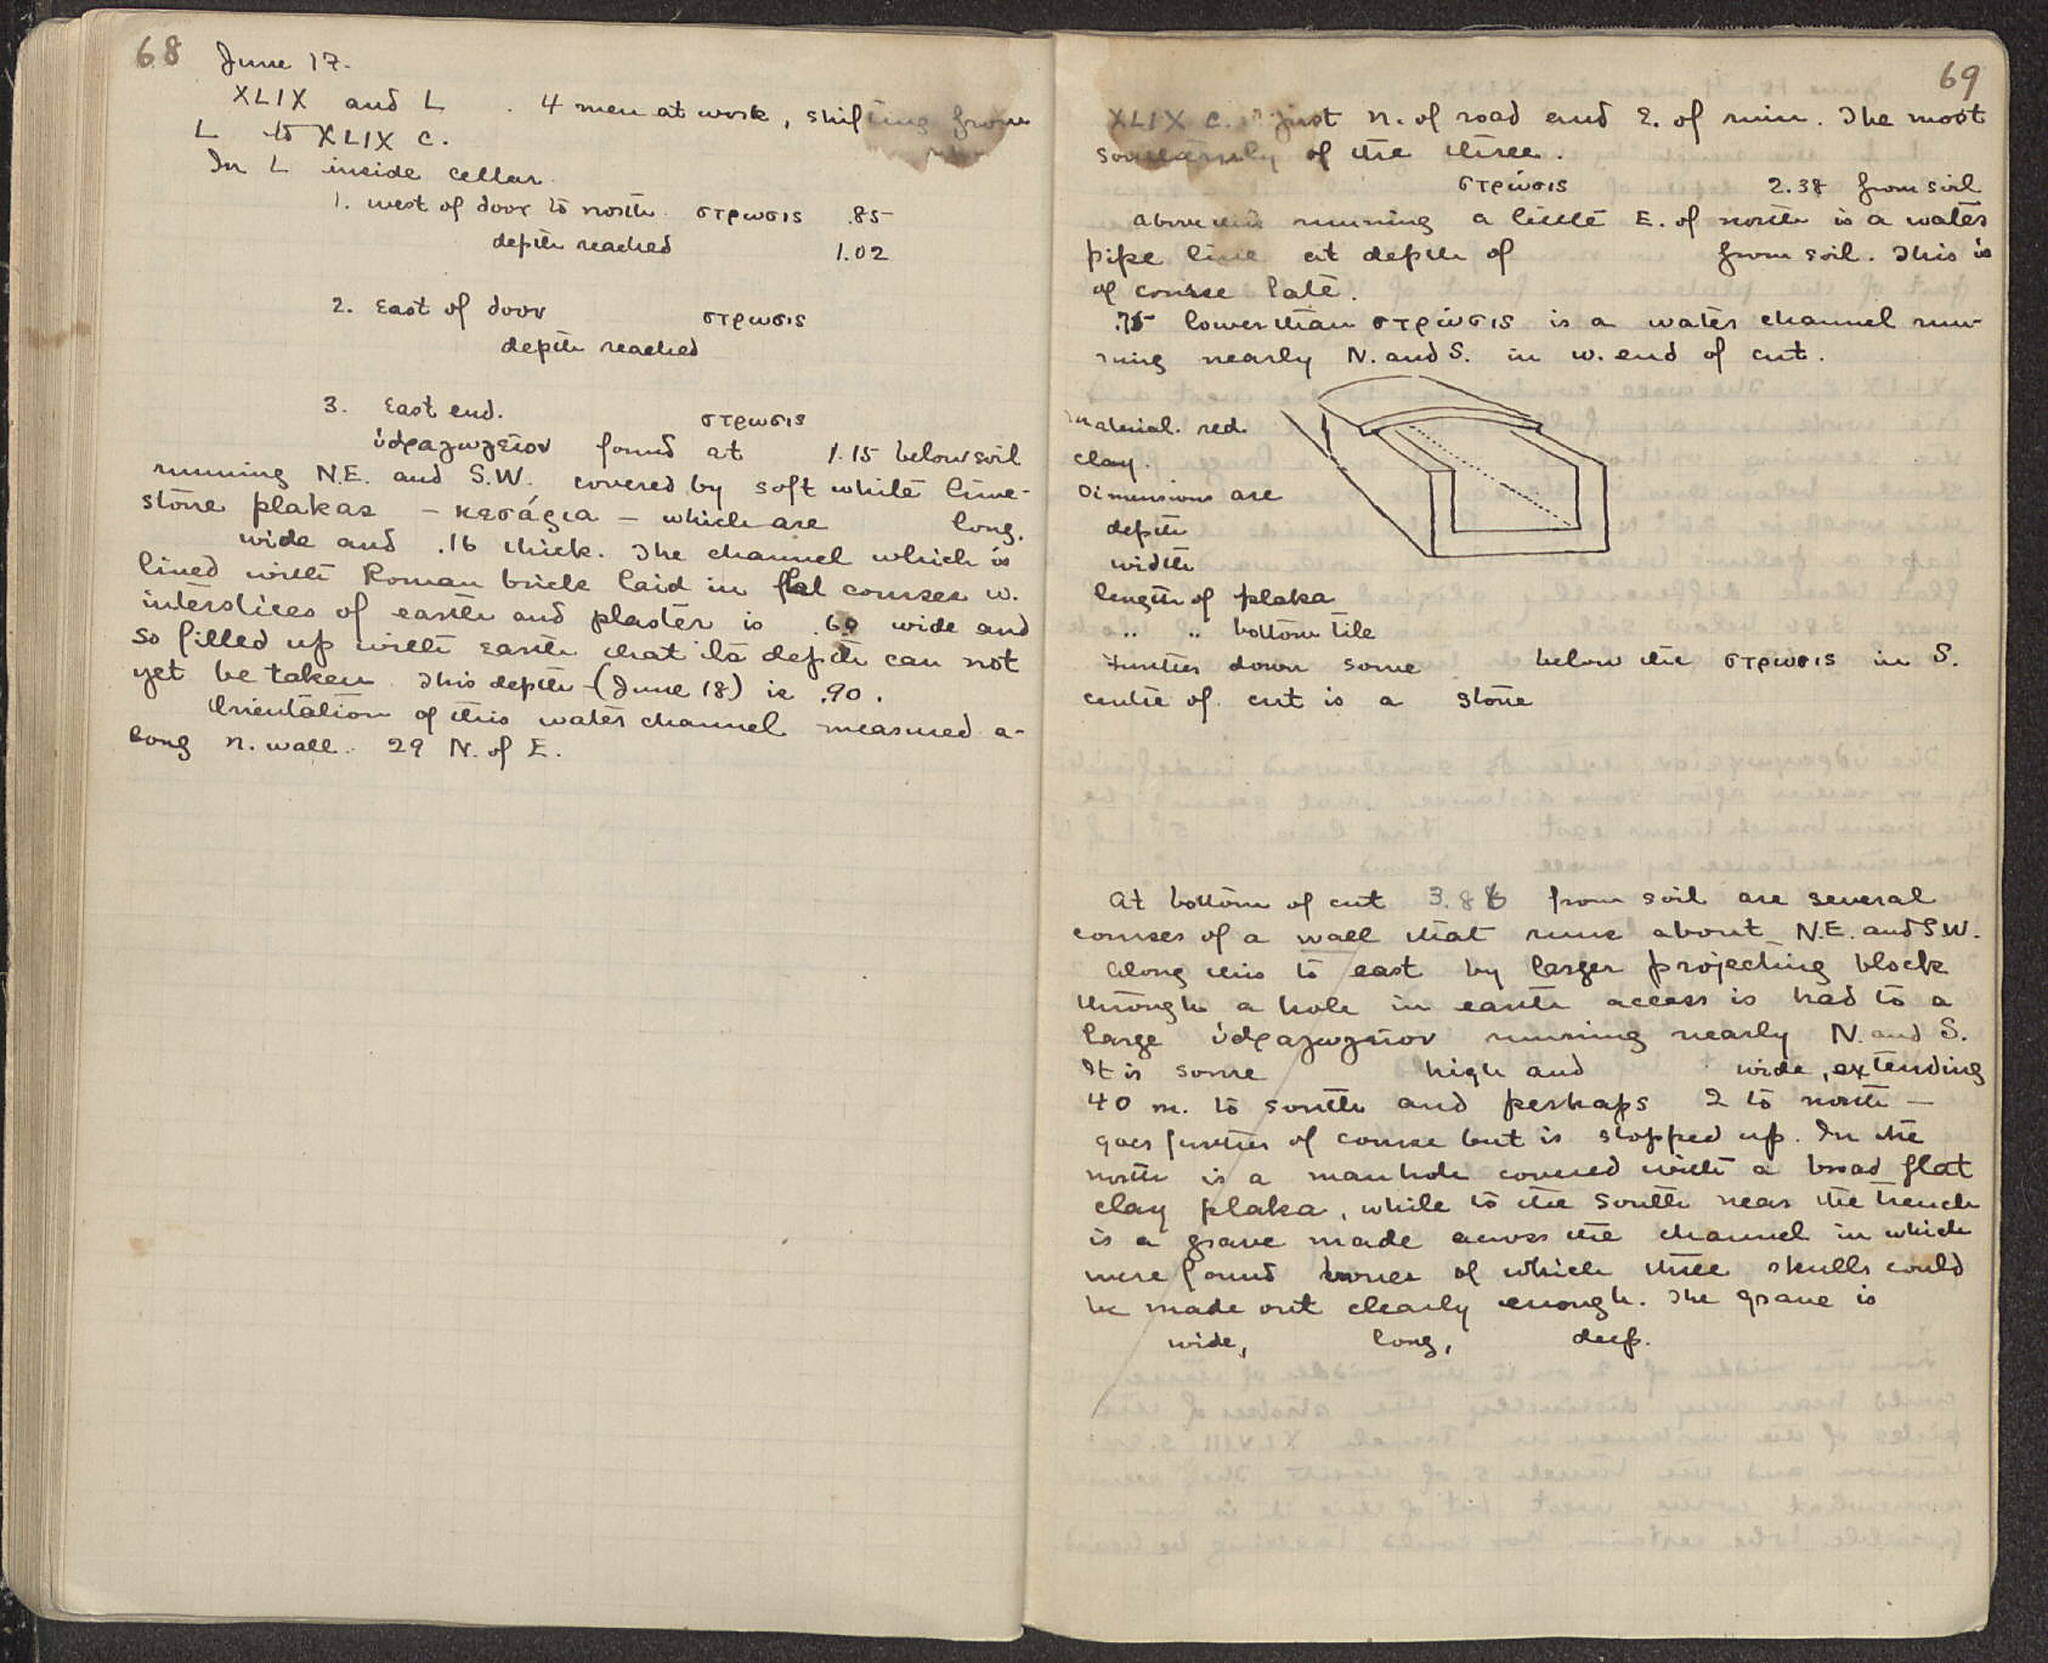 68 June 17.
XLIX and L . 4 men at work, shifting from
L to XLIX C.
In L inside cellar.
1. west of door to north στρωσις .85
depth reached 1.02
2. East of door στρωσις
depth reached
3. East end. στρωσις
ὑδραγωγεῖον found at 1.15 below soil
running N.E. and S.W. covered by soft white lime-
stone plakas – – which are long.
wide and .16 thick. The channel which is
lined with Roman brick laid in flat courses w.
interstices of earth and plaster is .60 wide and
so filled up with earth that its depth can not
yet be taken. This depth – (June 18) is .90.
Orientation of this water channel measured a-
long n. wall. 29 N. of E.
69
XLIX C. just n. of road and E. of ruin. The most
southernly of the three.
στρώσις 2.38 from soil
above this running a little E. of north is a water
pipe line at depth of from soil. This is
of course late.
.75 lower than στρώσις is a water channel run-
ning nearly N. and S. in w. end of cut.
Material. red
clay.
Dimensions are
depth
width
length of plaka
" " bottom tile
Further down some below the στρωσις in S.
centre of cut is a stone
At bottom of cut 3.8 from soil are several
courses of a wall that runs about N.E. and S.W.
Along this to east by larger projecting block
through a hole in earth access is had to a
large ὑδραγωγεῖον running nearly N. and S.
It is some high and wide, extending
40 m. to south and perhaps 2 to north –
goes further of course but is stopped up. In the
north is a manhole covered with a broad flat
clay plaka, while to the south near the trench
is a grave made across the channel in which
were found bones of which three skulls could
be made out clearly enough. The grave is
wide, long, deep.